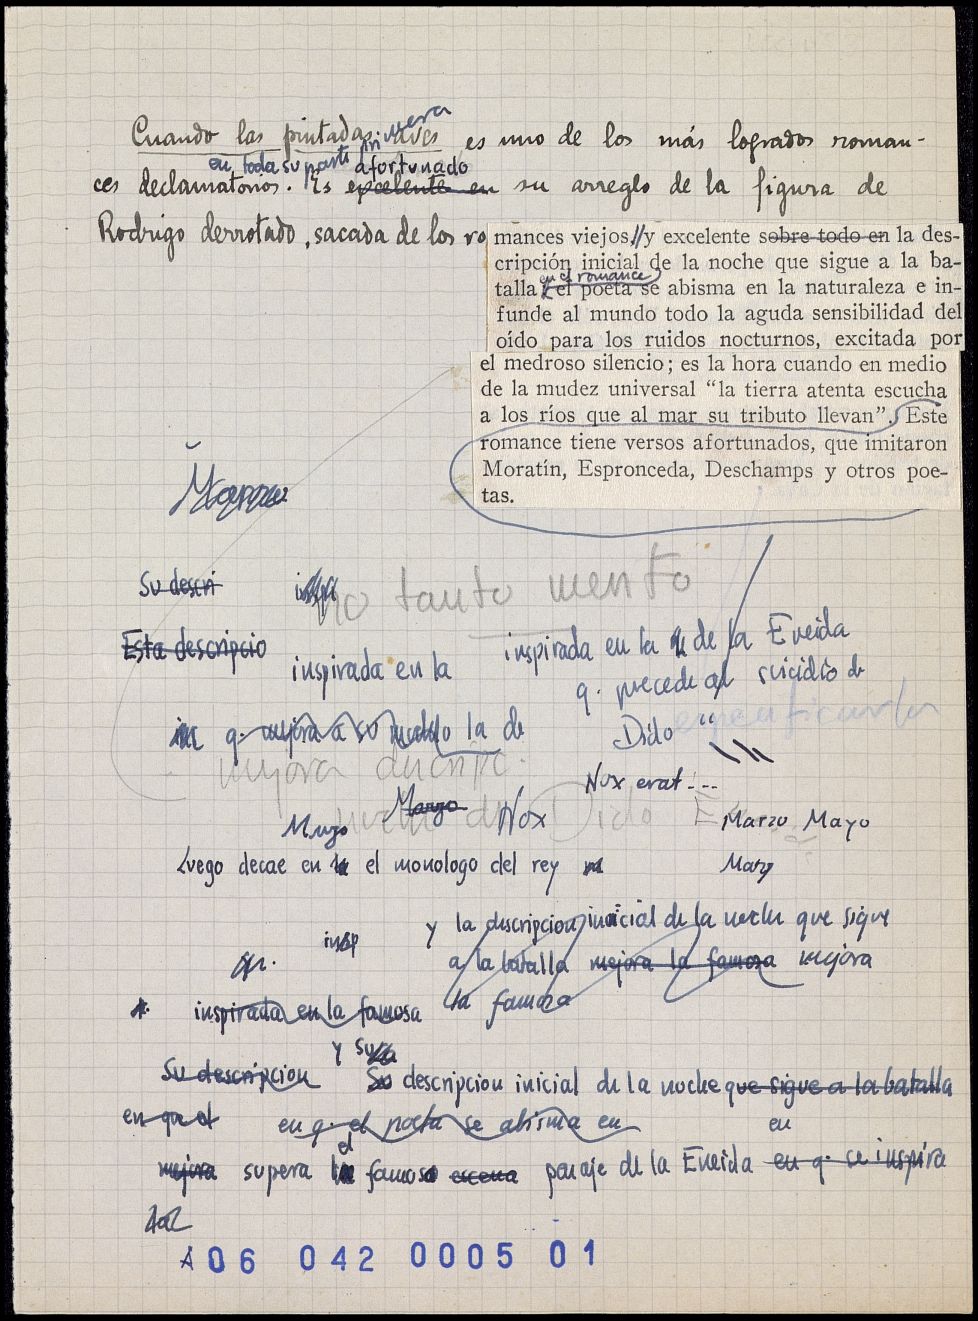 Cuando las pintadas aves, es uno de los más logrados roman-
en toda su parte afortunado
ces declamatorios. Es excelente en su arreglo de la figura de
Rodrigo derrotado, sacada de los ro
mances viejos, // y excelente sobre todo en la des-
cripción inicial de la noche que sigue a la ba-
en el romance
talla; el poeta se abisma en la naturaleza e in-
funde al mundo todo la aguda sensibilidad del
oído para los ruidos nocturnos, excitada por
el medroso silencio; es la hora cuando en medio
de la mudez universal “la tierra atenta escucha
a los ríos que al mar su tributo llevan”. Este
romance tiene versos afortunados, que imitaron
Moratín, Espronceda, Deschamps y otros poe-
tas.
Su descri
no tanto mento
Esta descripcio
inspirada en la
inspirada en la de la Eneida
q. precede al suicidio de
Dido
q. mejora a su modelo la de
mejora descripc.
Nox erat...
Marzo
Nox
Dido
Marzo Mayo
Luego decae en la el monologo del rey
Marz
y la descripcion inicial de la noche que sigue
insp
a la batalla mejora la famosa mejora
inspirada en la famosa
la famosa
y su
Su descripcion
Su descripcion inicial de la noche que sigue a la batalla
en que el
en q. el poeta se abisma en
en
el
mejora supera la famoso escena paraje de la Eneida en q. se inspira
A 06 042 0005 01